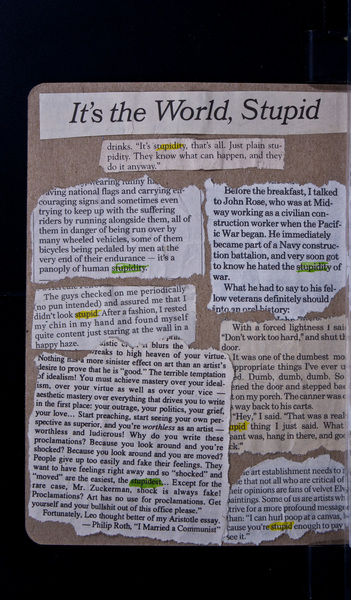 It's the World, Stupid
drinks. "It's stupidity, that's all. Just plain stu-
pidity. They know what can happen, and they
do it anyway."
wearing funny
waving national flags and carrying en-
couraging signs and sometimes even
trying to keep up with the suffering
riders by running alongside them, all of
them in danger of being run over by
many wheeled vehicles, some of them
bicycles being pedaled by men at the
very end of their endurance — it's a
panoply of human stupidity.
The guys checked on me periodically
no pun intended) and assured me that I
didn't look stupid. After a fashion, I rested
my chin in my hand and found myself
quite content just staring at the wall in a
happy haze.
breaks to high heaven of your virtue.
Nothing has a more sinister effect on art than an artist's
desire to prove that he is "good." The terrible temptation
of idealism! You must achieve mastery over your ideal-
ism, over your virtue as well as over your vice —
aesthetic mastery over everything that drives you to write
in the first place: your outrage, your politics, your grief,
your love... Start preaching, start seeing your own per-
spective as superior, and you're worthless as an artist —
worthless and ludicrous! Why do you write these
proclamations? Because you look around and you're
shocked? Because you look around and you are moved?
People give up too easily and fake their feelings. They
want to have feelings right away and so "shocked" and
"moved" are the easiest, the stupidest... Except for the
rare case, Mr. Zuckerman, shock is always fake!
Proclamations? Art has no use for proclamations. Get
yourself and your bullshit out of this office please."
Fortunately, Leo thought better of my Aristotle essay.
— Philip Roth, "I Married a Communist"
Before the breakfast, I talked
to John Rose, who was at Mid-
way working as a civilian con-
struction worker when the Pacif-
ic War began. He immediately
became part of a Navy construc-
tion battalion, and very soon got
to know he hated the stupidity of
war.
What he had to say to his fel-
low veterans definitely should
into an oral history:
With a forced lightness I said
"Don't work too hard," and shut th
door.
It was one of the dumbest mo
appropriate things I've ever
d. Dumb, dumb, dumb. So
ned the door and stepped bac
on my porch. The canner was
way back to his carts.
"Hey," I said. "That was a real
upid thing I just said. What
ant was, hang in there, and goo
ck."
e art establishment needs to
e that not all who are critical of
heir opinions are fans of velvet Elv
aintings. Some of us are artists wh
trive for a more profound messag
than: "I can hurl poop at a canvas,
cause you're stupid enough to pay
see it."